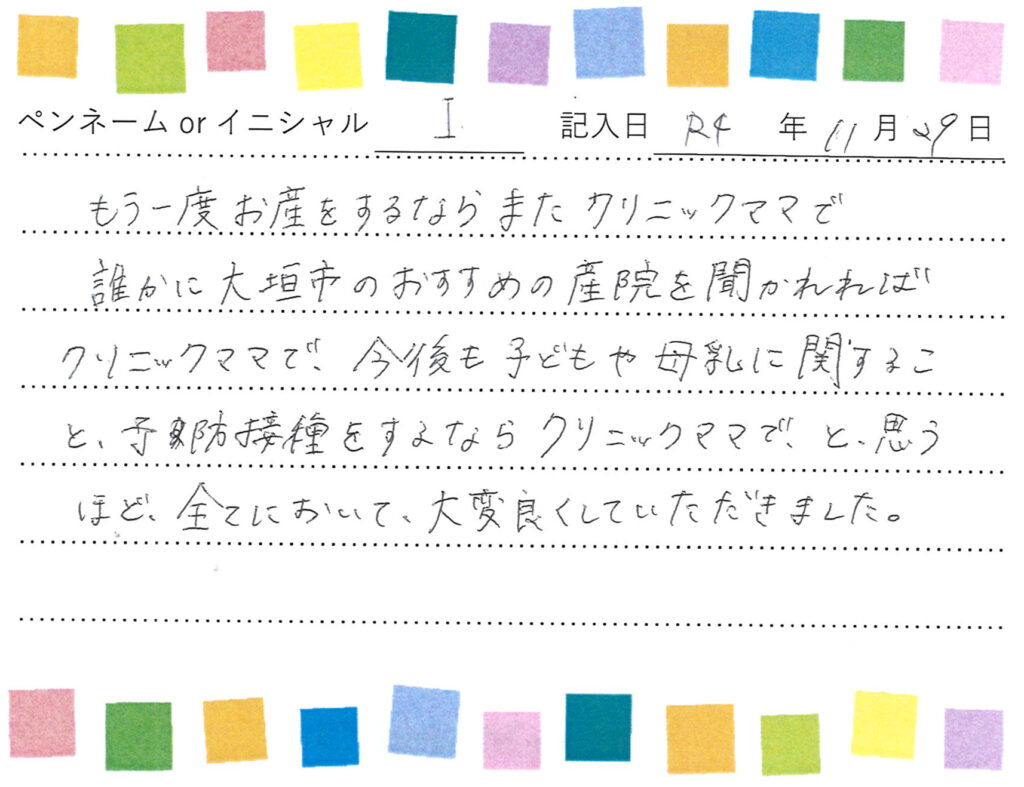 ペンネーム or イニシャル I 記入日 R4 年 11 月 29 日
もう一度お産をするならまたクリニックママで
誰かに大垣市のおすすめの産院を聞かれれば
クリニックママで、今後も子どもや母乳に関するこ
と、予防接種をするならクリニックママで、と、思う
ほど、全てにおいて、大変良くしていただきました。